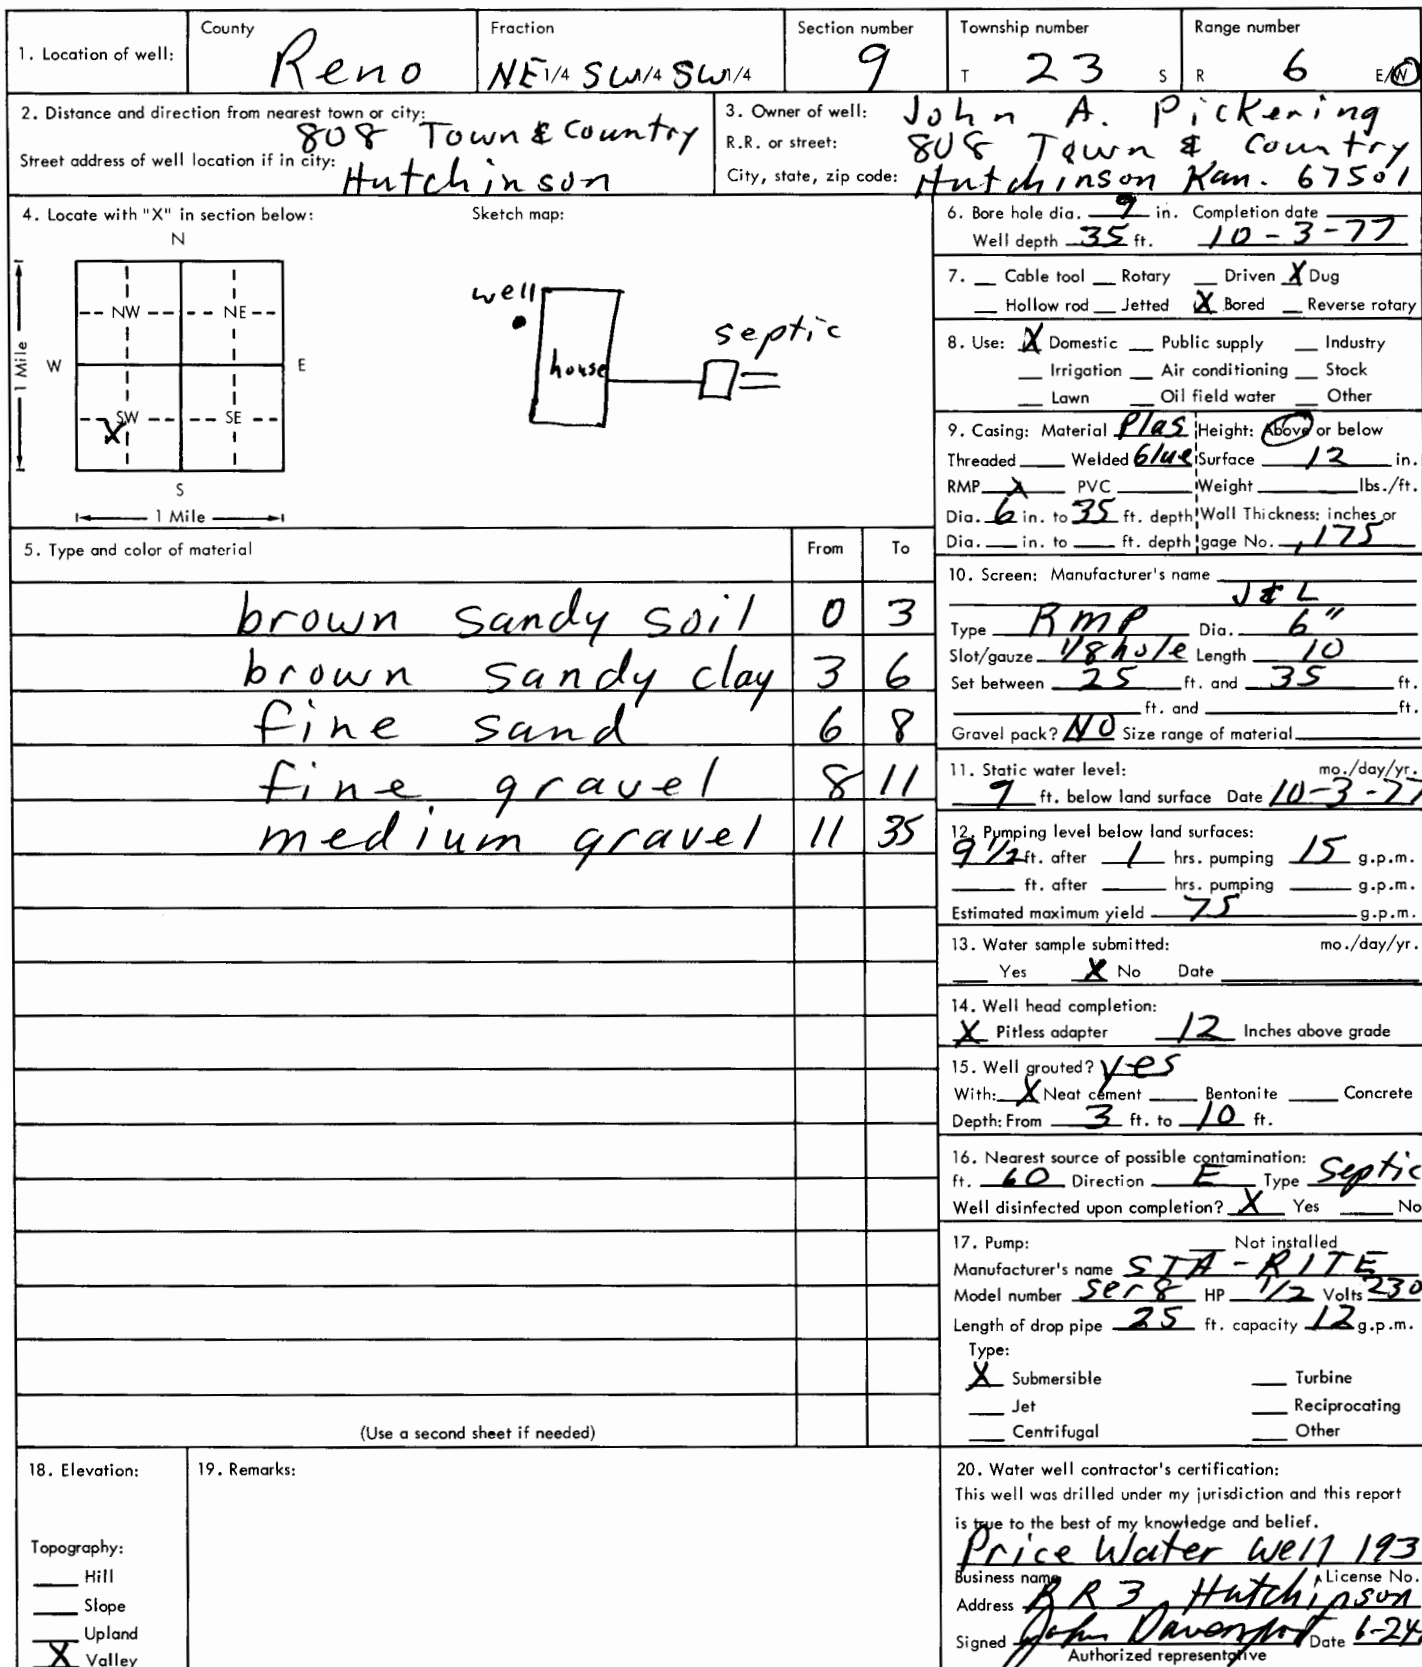 1. Location of well: County Reno Fraction NE 1/4 SW 1/4 SW 1/4 Section number 9 Township number T 23 S Range number R 6 E/W
2. Distance and direction from nearest town or city: 808 Town & Country
Street address of well location if in city: Hutchinson
3. Owner of well: John A. Pickering
R.R. or street: 808 Town & Country
City, state, zip code: Hutchinson Kan. 67501
4. Locate with "X" in section below:
N
NW NE
W E
SW SE
X
S
1 Mile
1 Mile
Sketch map:
well
septic
house
5. Type and color of material From To
brown sandy soil 0 3
brown sandy clay 3 6
fine sand 6 8
fine gravel 8 11
medium gravel 11 35
(Use a second sheet if needed)
6. Bore hole dia. 9 in. Completion date
Well depth 35 ft. 10-3-77
7. Cable tool Rotary Driven X Dug
Hollow rod Jetted X Bored Reverse rotary
8. Use: X Domestic Public supply Industry
Irrigation Air conditioning Stock
Lawn Oil field water Other
9. Casing: Material Plas Height: Above or below
Threaded Welded Glue Surface 12 in.
RMP X PVC Weight lbs./ft.
Dia. 6 in. to 35 ft. depth Wall Thickness: inches or
Dia. in. to ft. depth gage No. .175
10. Screen: Manufacturer's name
J & L
Type RMP Dia. 6"
Slot/gauze 1/8 hole Length 10
Set between 25 ft. and 35 ft.
ft. and ft.
Gravel pack? NO Size range of material
11. Static water level: mo./day/yr.
9 ft. below land surface Date 10-3-77
12. Pumping level below land surfaces:
9 1/2 ft. after 1 hrs. pumping 15 g.p.m.
ft. after hrs. pumping g.p.m.
Estimated maximum yield 75 g.p.m.
13. Water sample submitted: mo./day/yr.
Yes X No Date
14. Well head completion:
X Pitless adapter 12 Inches above grade
15. Well grouted? yes
With: X Neat cement Bentonite Concrete
Depth: From 3 ft. to 10 ft.
16. Nearest source of possible contamination:
ft. 60 Direction E Type Septic
Well disinfected upon completion? X Yes No
17. Pump: Not installed
Manufacturer's name STA-RITE
Model number Ser 8 HP 1/2 Volts 230
Length of drop pipe 25 ft. capacity 12 g.p.m.
Type:
X Submersible Turbine
Jet Reciprocating
Centrifugal Other
18. Elevation:
Topography:
Hill
Slope
Upland
X Valley
19. Remarks:
20. Water well contractor's certification:
This well was drilled under my jurisdiction and this report
is true to the best of my knowledge and belief.
Price Water Well 193
Business name License No.
Address RR 3 Hutchinson
Signed John Davenport Date 6-24
Authorized representative